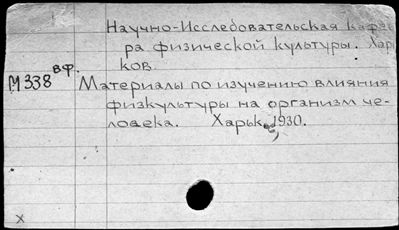 Научно-Исследовательская кафед
ра физической культуры. Харь
ков.
вф.
М338 Материалы по изучению влияния
физкультуры на организм че-
ловека. Харьк., 1930.
х